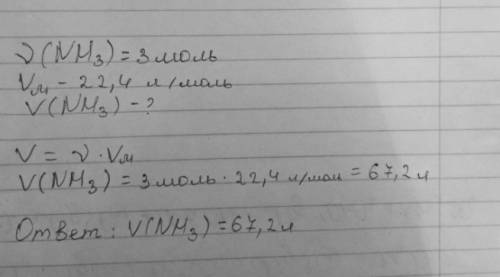 ν(NH₃) = 3 моль
Vм - 22,4 л/моль
V(NH₃) - ?
V = ν · Vм
V(NH₃) = 3 моль · 22,4 л/мол = 67,2 л
Ответ: V(NH₃) = 67,2 л